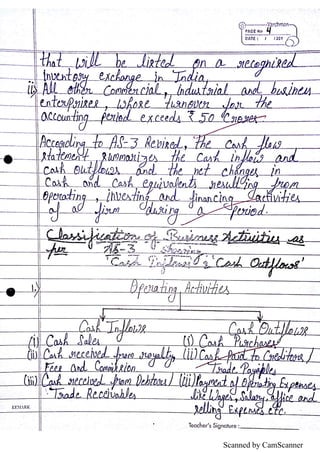 PAGE No 4
DATE : / / 201
that will be listed on a recognised
inventory exchange in India,
ii) All other Commercial, Industrial and business
enterprises, whose turnover for the
accounting period exceeds ₹ 50 Crores.
According to AS-3 Revised, the Cash flow
statement summarizes the Cash inflow and
cash Outflows and the net changes in
Cash and Cash equivalents resulting from
operating, investing and financing activities
of a firm during a period.
Classification of Business Activities as
per AS-3 showing
'Cash Inflows' & 'Cash Outflows'
1.) Operating Activities
Cash Inflows Cash Outflows
(i) Cash Sales (i) Cash Purchases
(ii) Cash received from royalty, (ii) Cash Paid to Creditors/
Fees and Commision Trade Payables
(iii) Cash received from Debtors/ (iii) Payment of Operating Expenses
Trade Receivables like Wages, Salary, office and
selling Expenses etc.
REMARK
Teacher's Signature :
Scanned by CamScanner